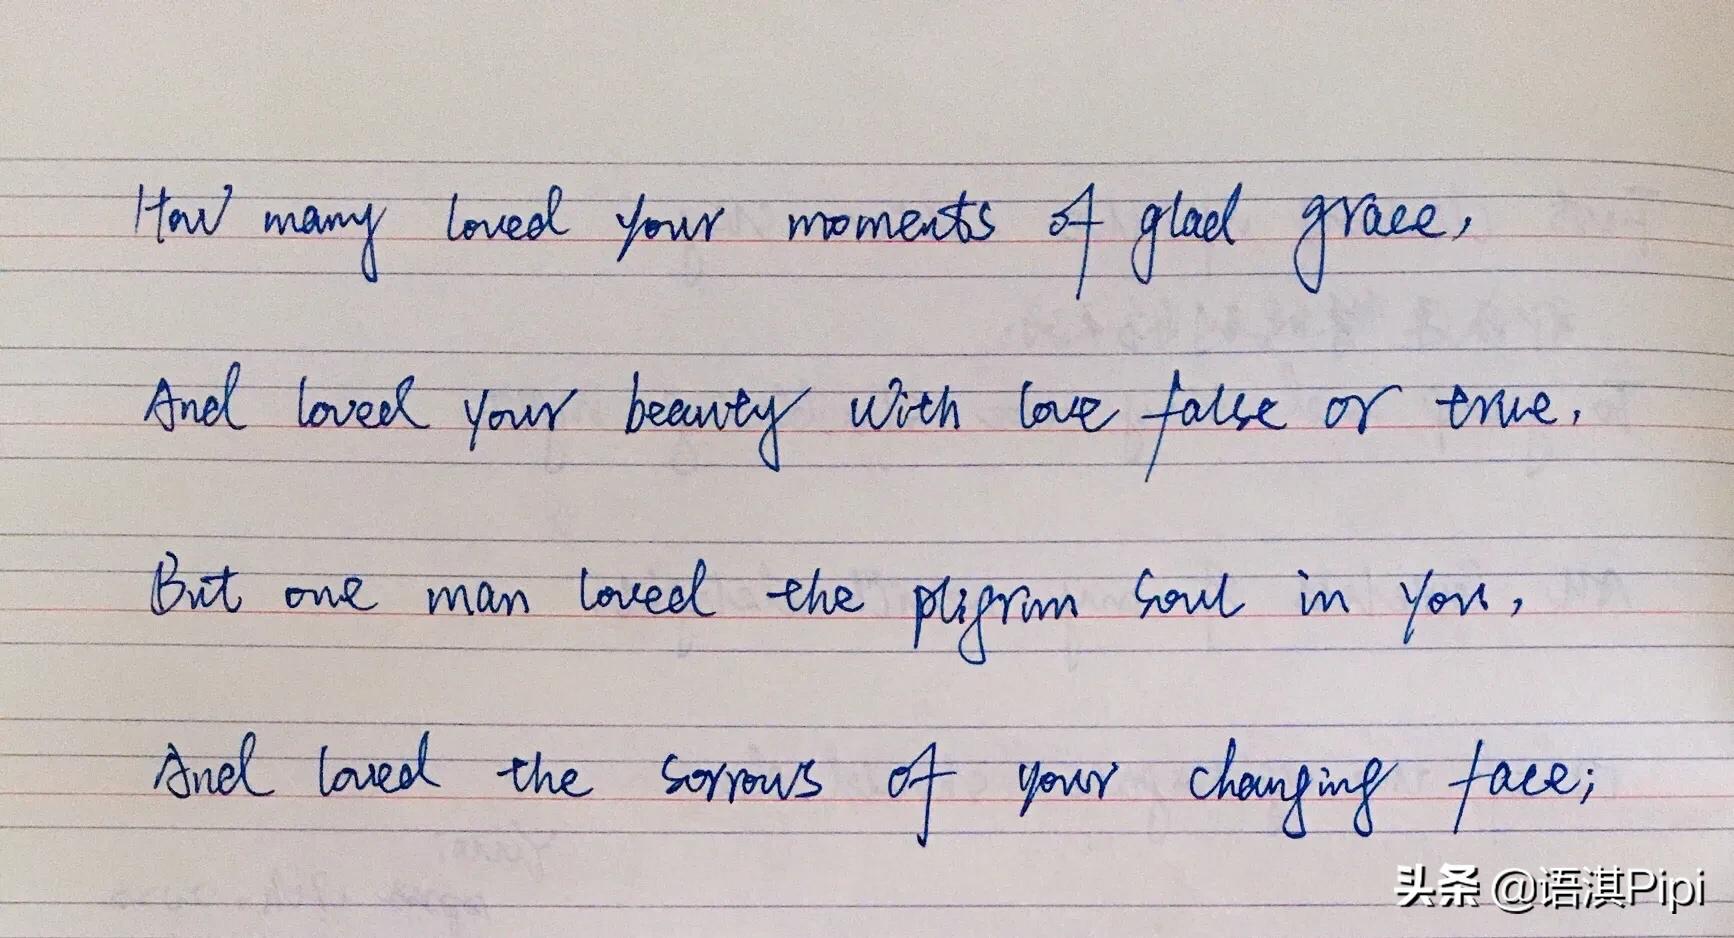 How many loved your moments of glad grace,
And loved your beauty with love false or true,
But one man loved the pligrim soul in you,
And loved the sorrows of your changing face;
头条 @语淇Pipi